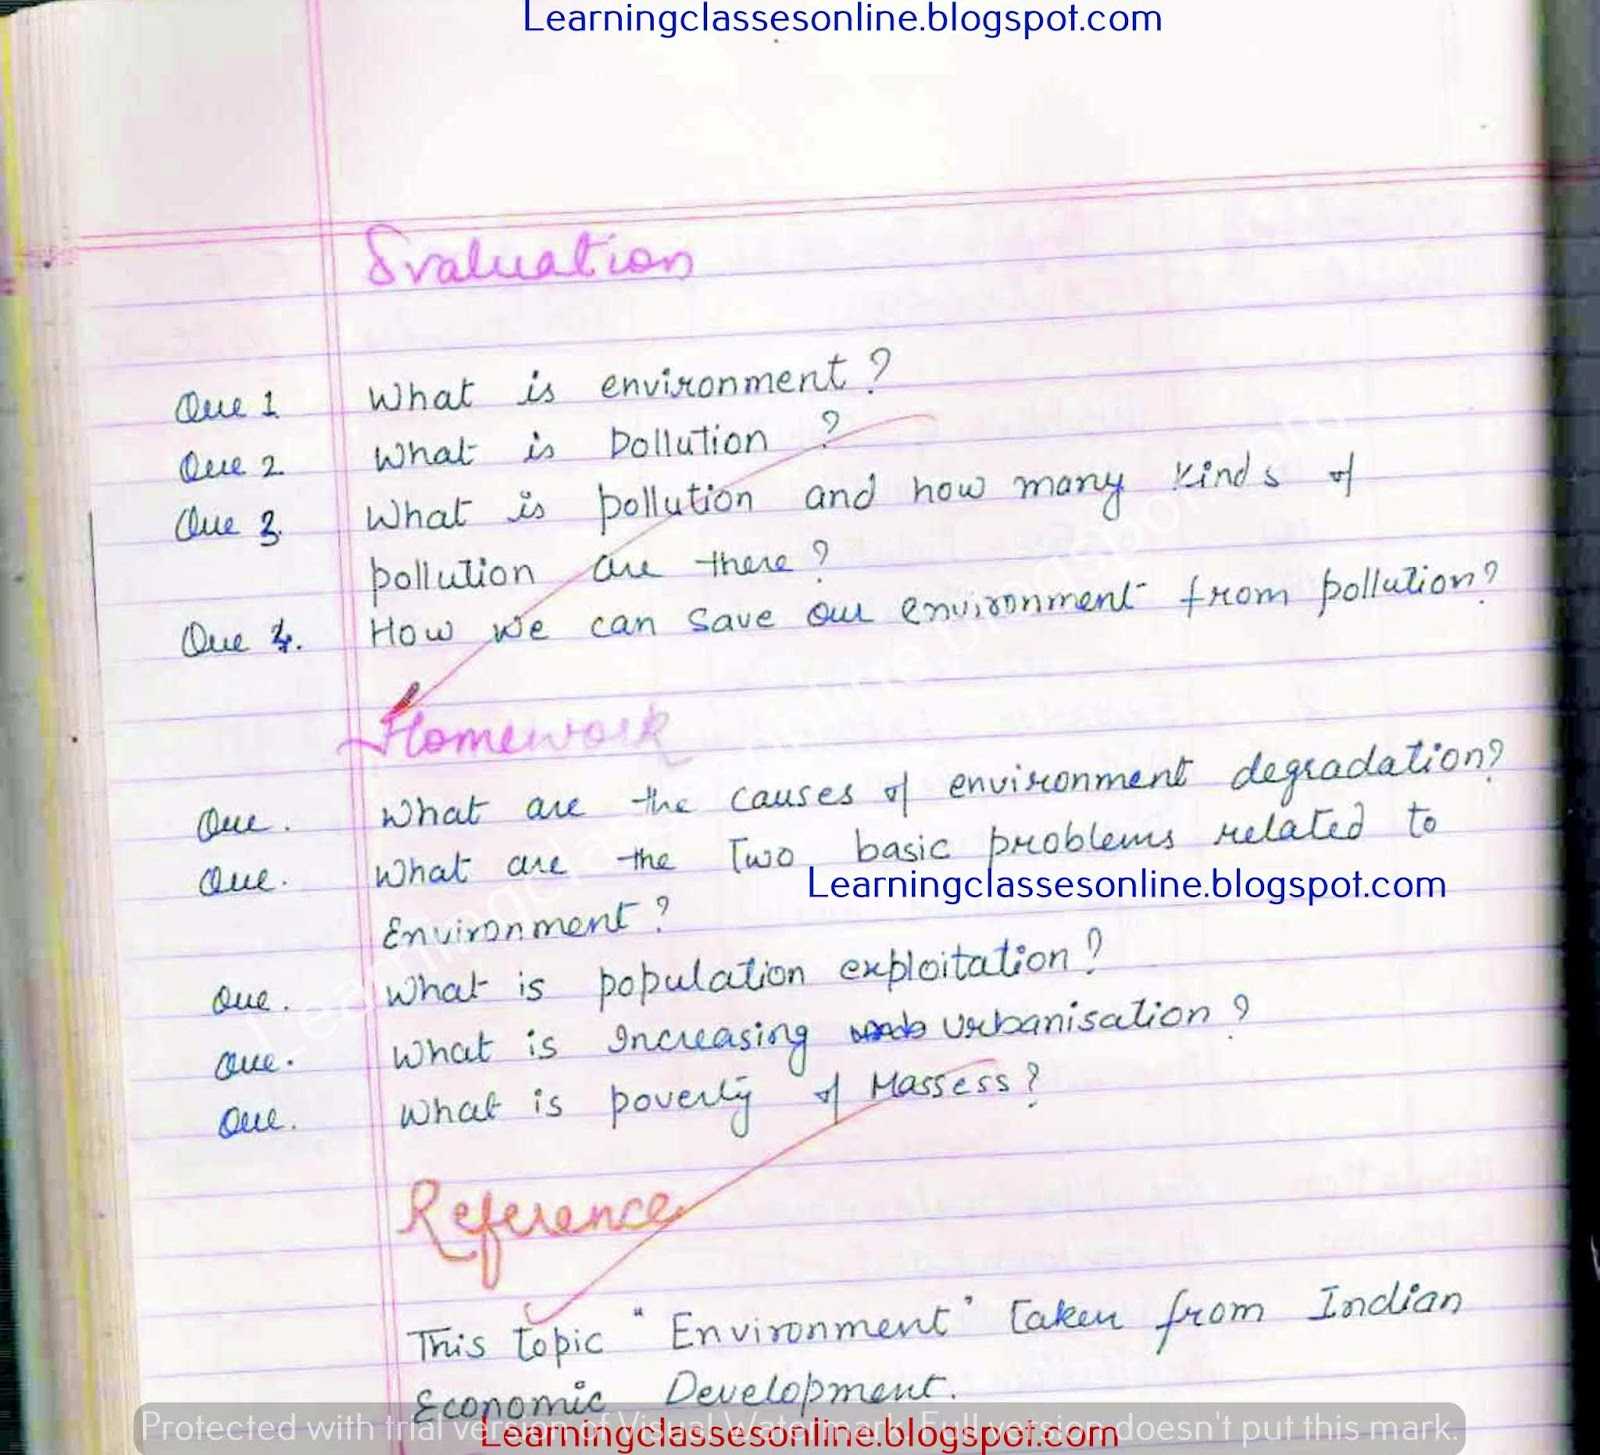 Learningclassesonline.blogspot.com
Evaluation
Que 1 What is environment?
Que 2 What is Pollution ?
Que 3. What is pollution and how many kinds of
pollution are there?
Que 4. How we can save our environment from pollution?
Homework
Que. What are the causes of environment degradation?
Que. What are the Two basic problems related to
Learningclassesonline.blogspot.com
Environment?
Que. What is population exploitation?
Que. What is Increasing urbanisation?
Que. What is poverty of Massess?
Reference
This topic "Environment" Taken from Indian
Economic Development.
Protected with trial version of Visual Watermark. Full version doesn't put this mark.
Learningclassesonline.blogspot.com